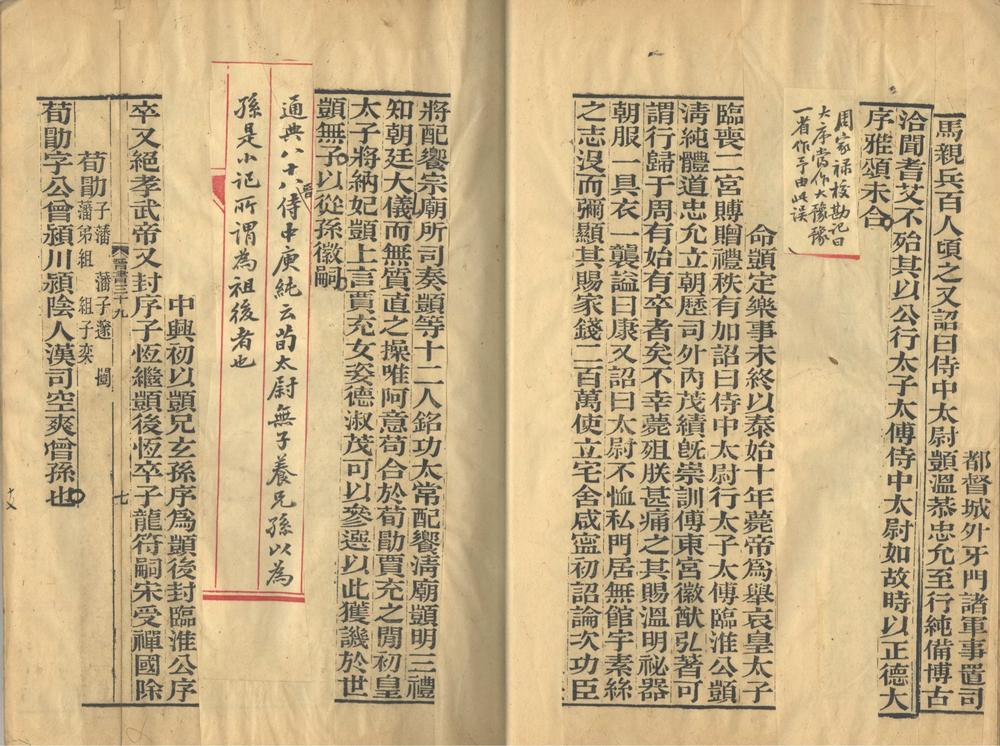 都督城外牙門諸軍事置司
馬親兵百人頃之又詔曰侍中太尉顗溫恭忠允至行純備博古
洽聞耆艾不殆其以公行太子太傅侍中太尉如故時以正德大
序雅頌未合
周家祿校勘記曰
大序當作大豫豫
一省作予由此誤
命顗定樂事未終以泰始十年薨帝爲舉哀皇太子
臨喪二宮賻贈禮秩有加詔曰侍中太尉行太子太傅臨淮公顗
淸純體道忠允立朝歷司外內茂績旣崇訓傅東宮徽猷弘著可
謂行歸于周有始有卒者矣不幸薨殂朕甚痛之其賜溫明祕器
朝服一具衣一襲謚曰康又詔曰太尉不恤私門居無館宇素絲
之志沒而彌顯其賜家錢二百萬使立宅舍咸寍初詔論次功臣
將配饗宗廟所司奏顗等十二人銘功太常配饗淸廟顗明三禮
知朝廷大儀而無質直之操唯阿意苟合於荀勖賈充之閒初皇
太子將納妃顗上言賈充女姿德淑茂可以參選以此獲譏於世
顗無子以從孫徽嗣
通典八十八晉侍中庾純云荀太尉無子養兄孫以為
孫是小記所謂為祖後者也
中興初以顗兄玄孫序爲顗後封臨淮公序
卒又絕孝武帝又封序子恆繼顗後恆卒子龍符嗣宋受禪國除
晉書三十九
七
荀勖子藩 藩子邃 闓
藩弟組 組子奕
荀勖字公曾潁川潁陰人漢司空爽曾孫也